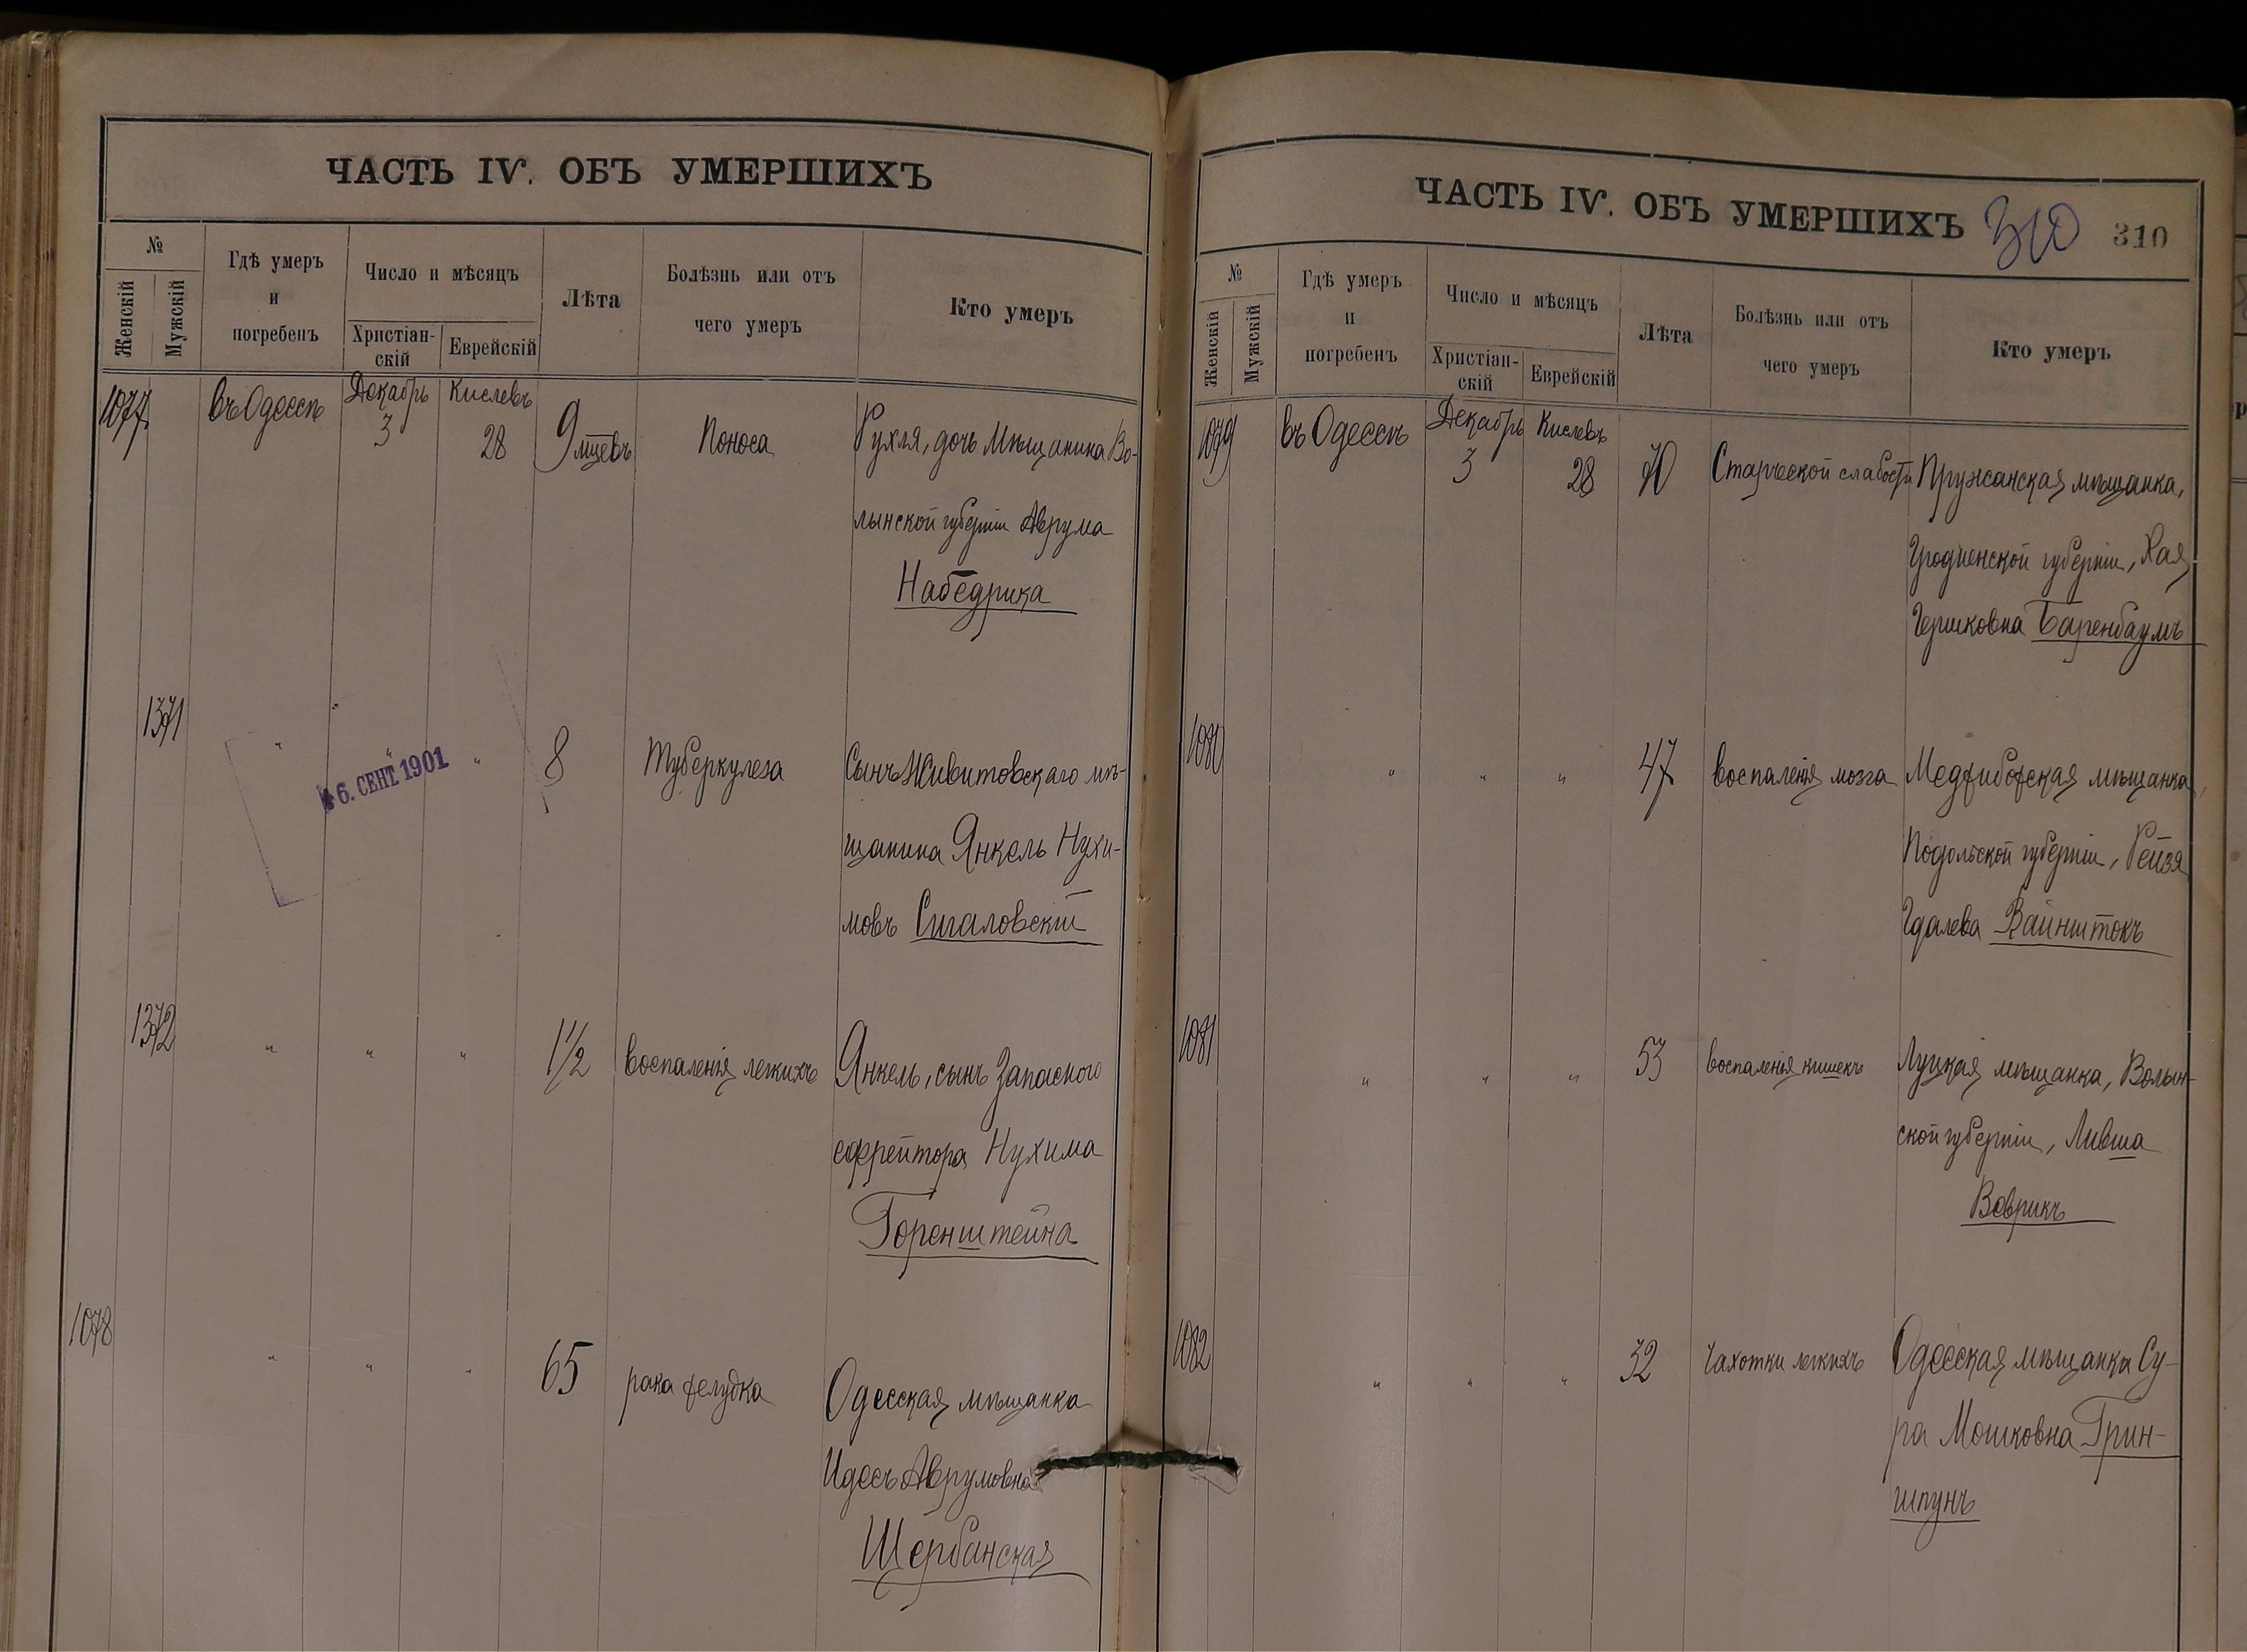 ЧАСТЬ IV. ОБЪ УМЕРШИХЪ
№
Женскій
Мужскій
Гдѣ умеръ
и
погребенъ
Число и мѣсяцъ
Христіан-
скій
Еврейскій
Лѣта
Болѣзнь или отъ
чего умеръ
Кто умеръ
1077
въ Одессѣ
Декабрь
3
Кислевъ
28
9 мцевъ
Поноса
Рухля, дочь Мѣщанина Во-
лынской губерніи Аврума
Набедрика
1371
"
"
"
6. СЕНТ. 1901
8
Туберкулеза
Сынъ Живитовскаго мѣ-
щанина Янкель Нухи-
мовъ Сигаловскій
1372
"
"
"
1 1/2
воспаленія легкихъ
Янкель, сынъ Запасного
ефрейтора Нухима
Горенштейна
1078
"
"
"
65
рака желудка
Одесская мѣщанка
Идесъ Аврумовна
Щербанская
ЧАСТЬ IV. ОБЪ УМЕРШИХЪ
310
310
№
Женскій
Мужскій
Гдѣ умеръ
и
погребенъ
Число и мѣсяцъ
Христіан-
скій
Еврейскій
Лѣта
Болѣзнь или отъ
чего умеръ
Кто умеръ
1079
въ Одессѣ
Декабрь
3
Кислевъ
28
70
Старческой слабости
Пружанская мѣщанка,
Гродненской губерніи, Хая
Гершковна Баренбаумъ
1080
"
"
"
47
воспаленія мозга
Меджибожская мѣщанка,
Подольской губерніи, Рейзя
Гдалева Вайнштокъ
1081
"
"
"
53
воспаленія кишекъ
Луцкая мѣщанка, Волын-
ской губерніи, Ливша
Воврикъ
1082
"
"
"
32
Чахотки легкихъ
Одесская мѣщанка Су-
ра Мошковна Грин-
шпунъ